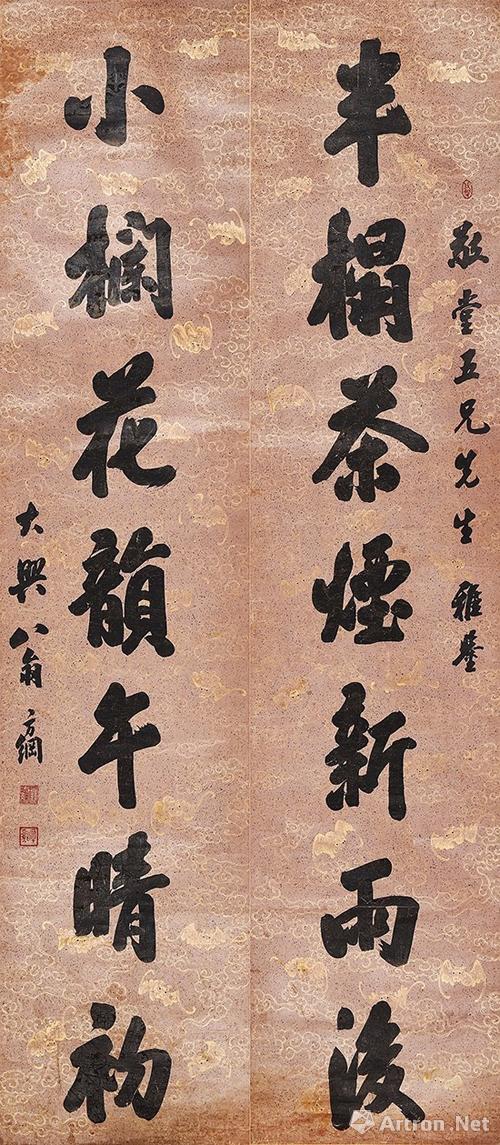 敬堂五兄先生 雅鑒
半榻茶煙新雨後
小欄花韻午晴初
大興翁方綱
Artron.Net